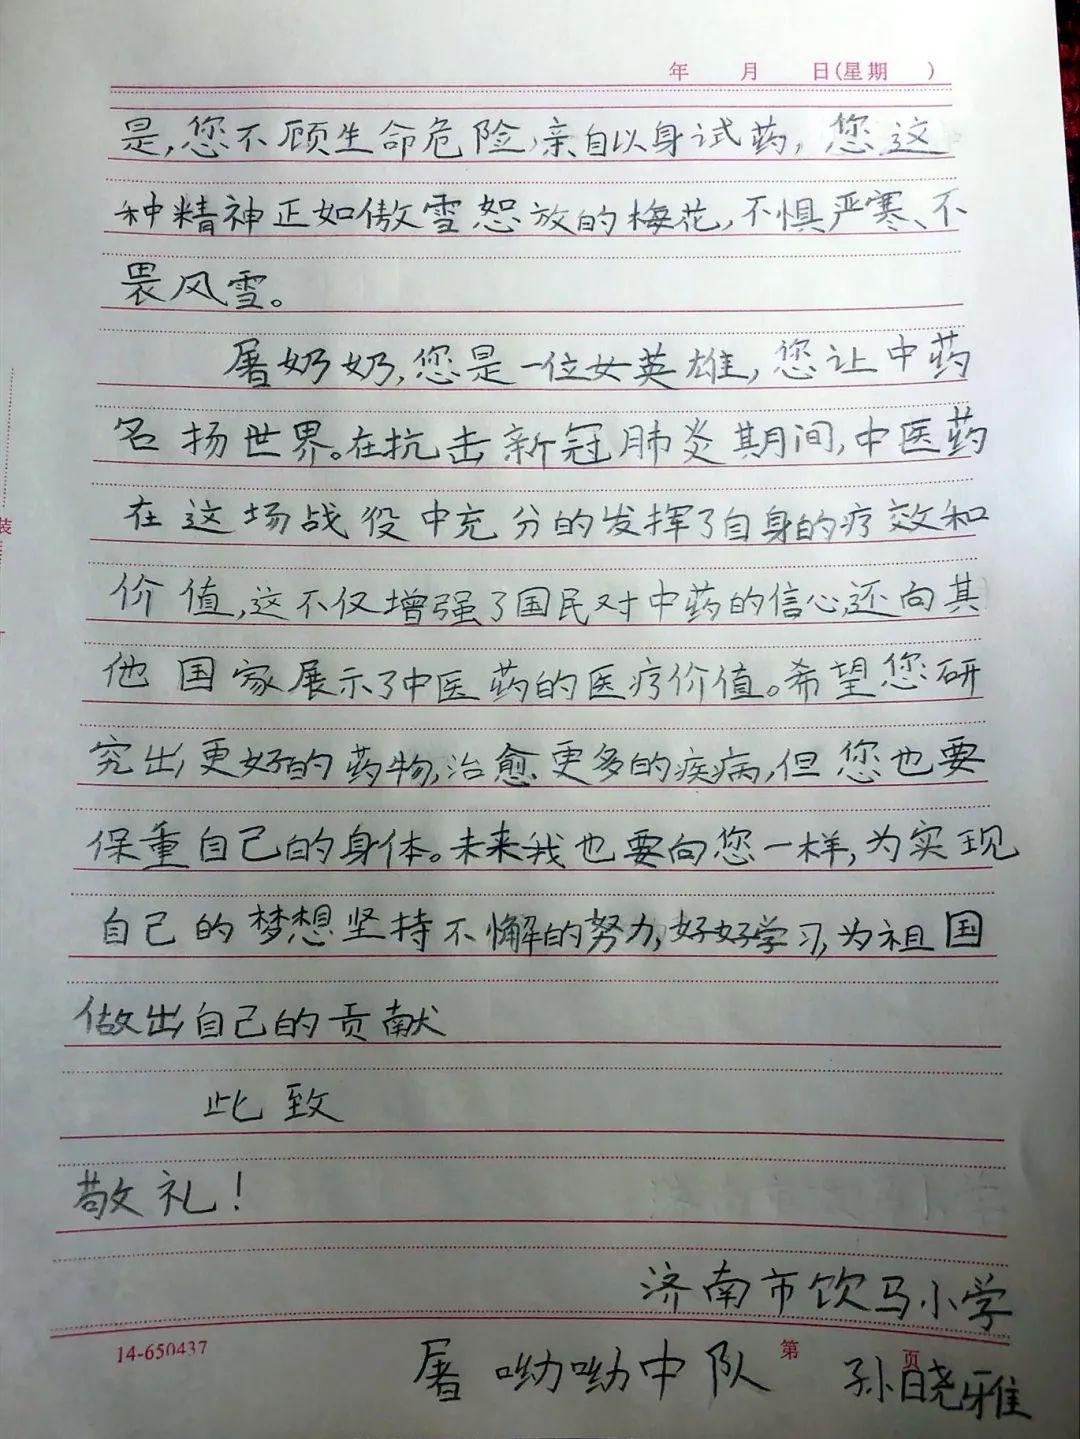 年 月 日(星期 )
是,您不顾生命危险,亲自以身试药,您这
种精神正如傲雪恕放的梅花,不惧严寒、不
畏风雪。
屠奶奶,您是一位女英雄,您让中药
名扬世界。在抗击新冠肺炎期间,中医药
在这场战役中充分的发挥了自身的疗效和
价值,这不仅增强了国民对中药的信心,还向其
他国家展示了中医药的医疗价值。希望您研
究出更好的药物,治愈更多的疾病,但您也要
保重自己的身体。未来我也要向您一样,为实现
自己的梦想坚持不懈的努力,好好学习,为祖国
做出自己的贡献
此致
敬礼!
济南市饮马小学
14-650437 第 页
屠呦呦中队 孙晓雅
装